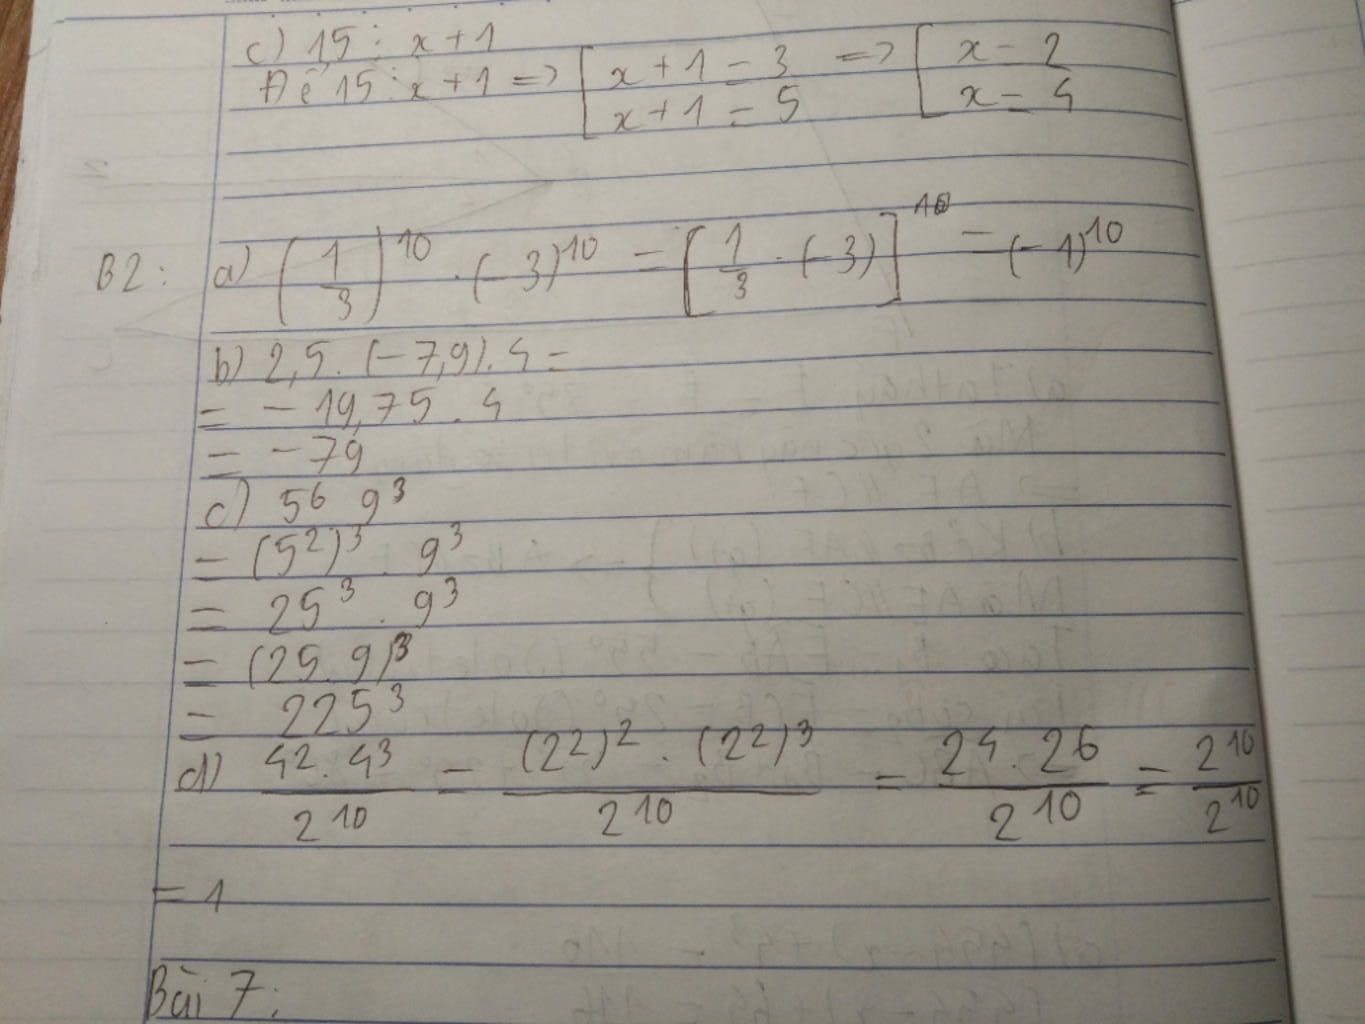 c) 15 ⋮ x + 1
Để 15 ⋮ x + 1 => [ x + 1 = 3 => [ x = 2
x + 1 = 5 x = 4
B2: a) (1/3)^10 . (-3)^10 = [1/3 . (-3)]^10 = (-1)^10
b) 2,5 . (-7,9) . 4 =
= -19,75 . 4
= -79
c) 5^6 9^3
= (5^2)^3 . 9^3
= 25^3 . 9^3
= (25 . 9)^3
= 225^3
d) 4^2 . 4^3 / 2^10 = (2^2)^2 . (2^2)^3 / 2^10 = 2^4 . 2^6 / 2^10 = 2^10 / 2^10
= 1
Bài 7: